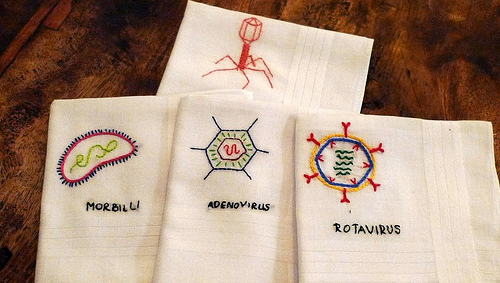 MORBILLI
ADENOVIRUS
ROTAVIRUS